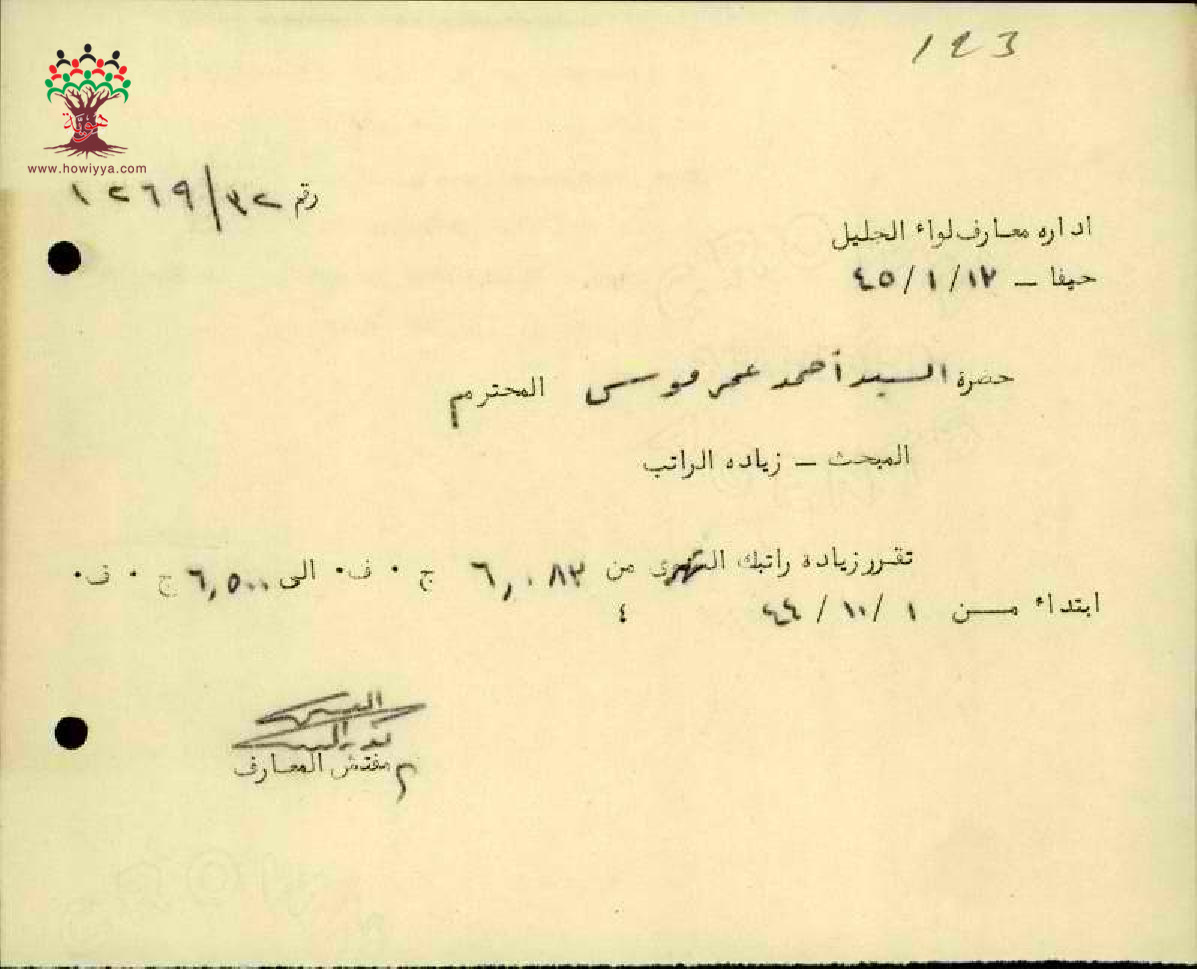 123
هوية
www.howiyya.com
رقم ٣٢/١٢٦٩
اداره معارف لواء الجليل
حيفا – ١٢/١/٤٥
حضرة السيد أحمد عمر موسى المحترم
المبحث – زياده الراتب
تقرر زياده راتبك الشهرى من ٦,٠٨٣ ج ٠ ف٠ الى ٦,٥٠٠ ج ٠ ف٠
ابتداء من ١/١٠/٤٤
٤
م مفتش المعارف